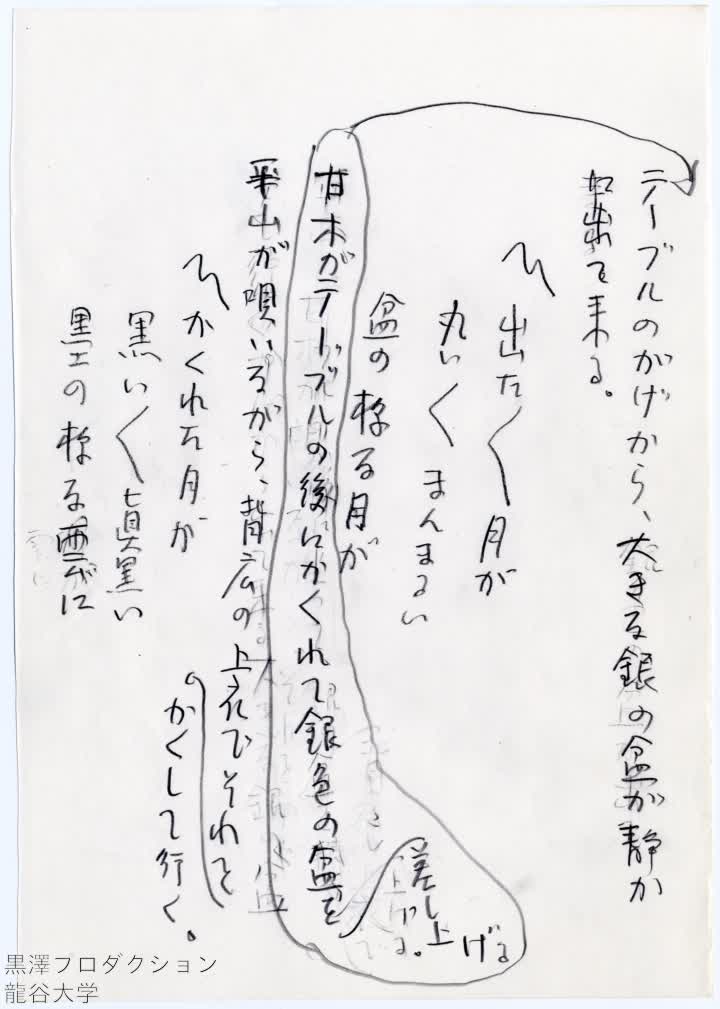 テーブルのかげから、大きな銀の盆が静か
に出て来る。
〽出た〱月が
丸い〱まんまるい
盆の様な月が
甘木がテーブルの後にかくれて銀色の盆を
差し上げる
平山が唄いながら、背広の上衣でそれを
かくして行く。
〽かくれた月が
黒い〱真黒い
墨の様な雲に
黒澤プロダクション
龍谷大学